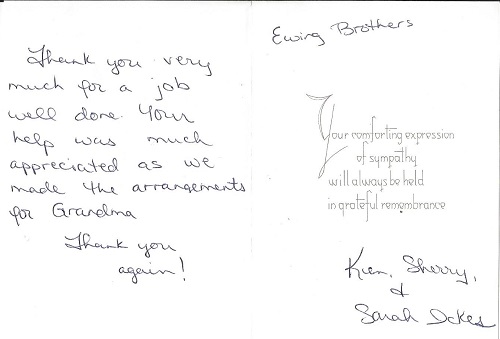 Thank you very
much for a job
well done. Your
help was much
appreciated as we
made the arrangements
for Grandma
Thank you
again!
Ewing Brothers
Your comforting expression
of sympathy
will always be held
in grateful remembrance
Ken, Sherry,
&
Sarah Ickes